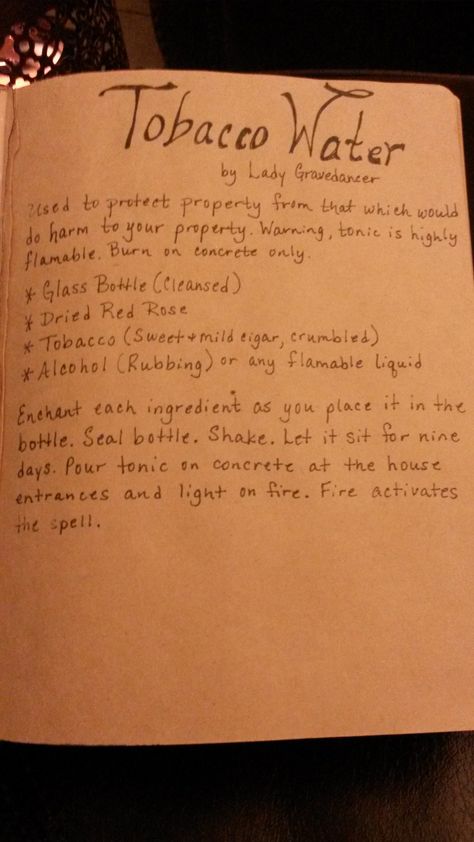 Tobacco Water
by Lady Gravedancer
Used to protect property from that which would
do harm to your property. Warning, tonic is highly
flamable. Burn on concrete only.
* Glass Bottle (Cleansed)
* Dried Red Rose
* Tobacco (Sweet & mild cigar, crumbled)
* Alcohol (Rubbing) or any flamable liquid
Enchant each ingredient as you place it in the
bottle. Seal bottle. Shake. Let it sit for nine
days. Pour tonic on concrete at the house
entrances and light on fire. Fire activates
the spell.